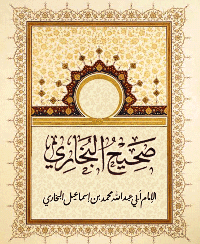 صحيح البخاري
الإمام أبي عبد الله محمد بن إسماعيل البخاري